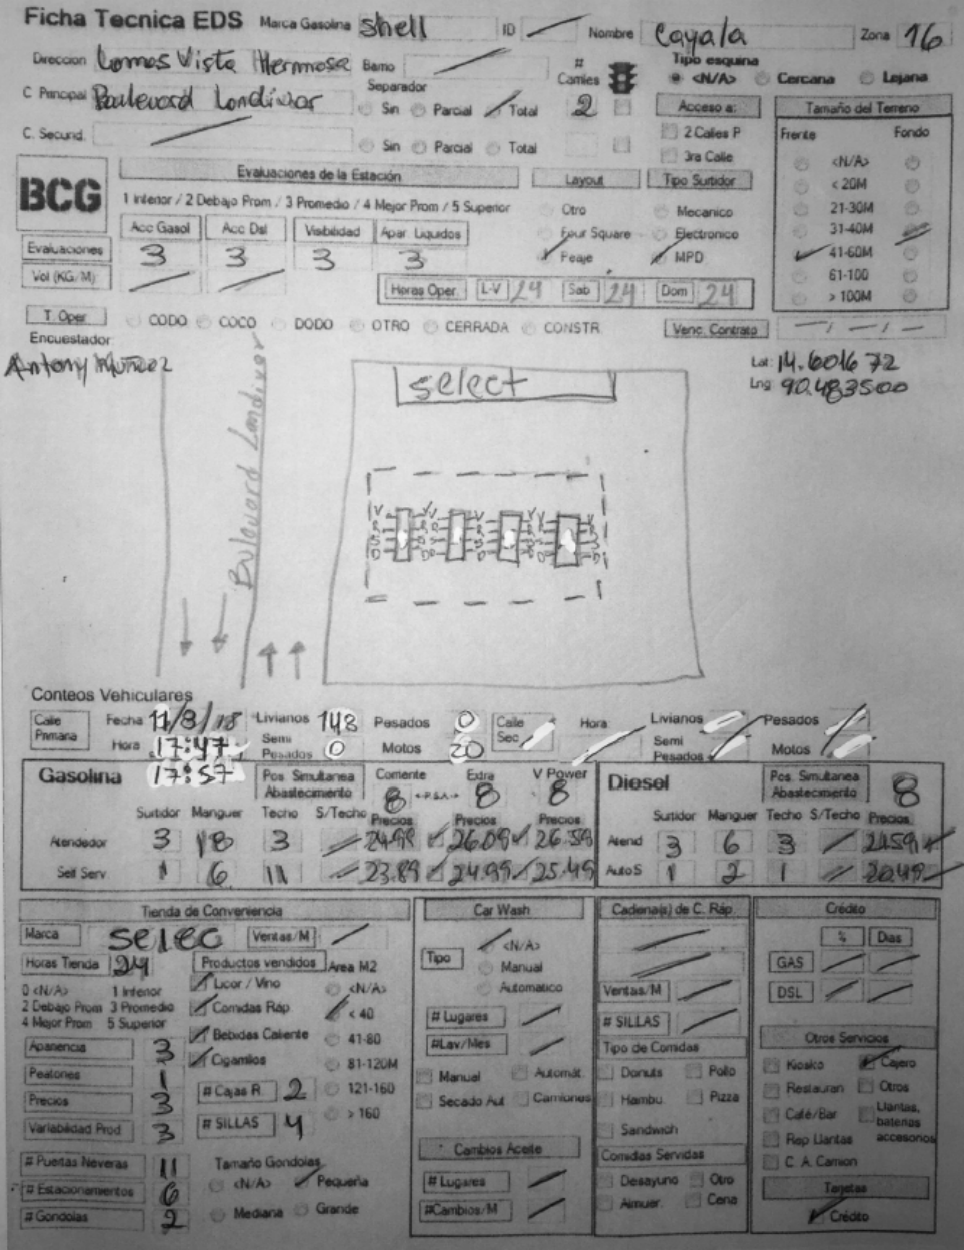 Ficha Tecnica EDS Marca Gasolina shell ID Nombre Cayala Zona 16
Direccion Lomas Vista Hermosa Barrio # Carriles Tipo esquina
Separador <N/A> Cercana Lejana
C Principal Boulevard Landivar Sin Parcial Total 2 Acceso a: Tamaño del Terreno
C. Secund. Sin Parcial Total 2 Calles P Frente Fondo
3ra Calle <N/A>
BCG Evaluaciones de la Estación Layout Tipo Surtidor < 20M
1 Inferior / 2 Debajo Prom / 3 Promedio / 4 Mejor Prom / 5 Superior Otro Mecanico 21-30M
Acc Gasol Acc Dsl Visibilidad Apar Liquidos Four Square Electronico 31-40M
Evaluaciones 3 3 3 3 Feaje MPD 41-60M
Vol (KG/M) 61-100
Horas Oper. L-V 24 Sab 24 Dom 24 > 100M
T. Oper CODO COCO DODO OTRO CERRADA CONSTR Venc. Contrato
Encuestador:
Antony Muñoz
Lat: 14.601672
Lng: 90.483500
select
Bulevard Landivar
V V V V V V V
R R R R R R R
S S S S S S S
D D D D D D D
Conteos Vehiculares
Calle Primaria Fecha 11/8/18 Livianos 148 Pesados 0 Calle Sec Hora: Livianos Pesados
Hora 17:47 Semi Pesados 0 Motos 20 Semi Pesados Motos
17:57
Gasolina Pos. Simultanea Abastecimiento Corriente 8 Extra 8 V Power 8 Diesel Pos. Simultanea Abastecimiento 8
Surtidor Manguer Techo S/Techo Precios Precios Precios Surtidor Manguer Techo S/Techo Precios
Atendedor 3 18 3 24.99 26.09 26.59 Atend 3 6 3 21.59
Self Serv. 1 6 11 23.89 24.99 25.49 Auto S 1 2 1 20.49
Tienda de Conveniencia Car Wash Cadena(s) de C. Ráp. Crédito
Marca selec Ventas/M <N/A> % Dias
Horas Tienda 24 Productos vendidos Area M2 Tipo Manual GAS
0 <N/A> 1 Inferior Licor / Vino <N/A> Automatico Ventas/M DSL
2 Debajo Prom 3 Promedio Comidas Ráp < 40 # Lugares # SILLAS
4 Mejor Prom 5 Superior Bebidas Caliente 41-80 #Lav/Mes Tipo de Comidas Otros Servicios
Apariencia 3 Cigarrillos 81-120M Manual Automát. Donuts Pollo Kiosko Cajero
Peatones 1 # Cajas R 2 121-160 Secado Aut Camiones Hambu. Pizza Restauran Otros
Precios 3 > 160 Sandwich Café/Bar Llantas, baterias accesorios
Variabilidad Prod 3 # SILLAS 4 Cambios Aceite Comidas Servidas Rep Llantas
# Puertas Neveras 11 Tamaño Gondolas # Lugares Desayuno Otro C. A. Camion
# Estacionamientos 6 <N/A> Pequeña #Cambios/M Almuer. Cena Tarjetas
# Gondolas 2 Mediana Grande Crédito